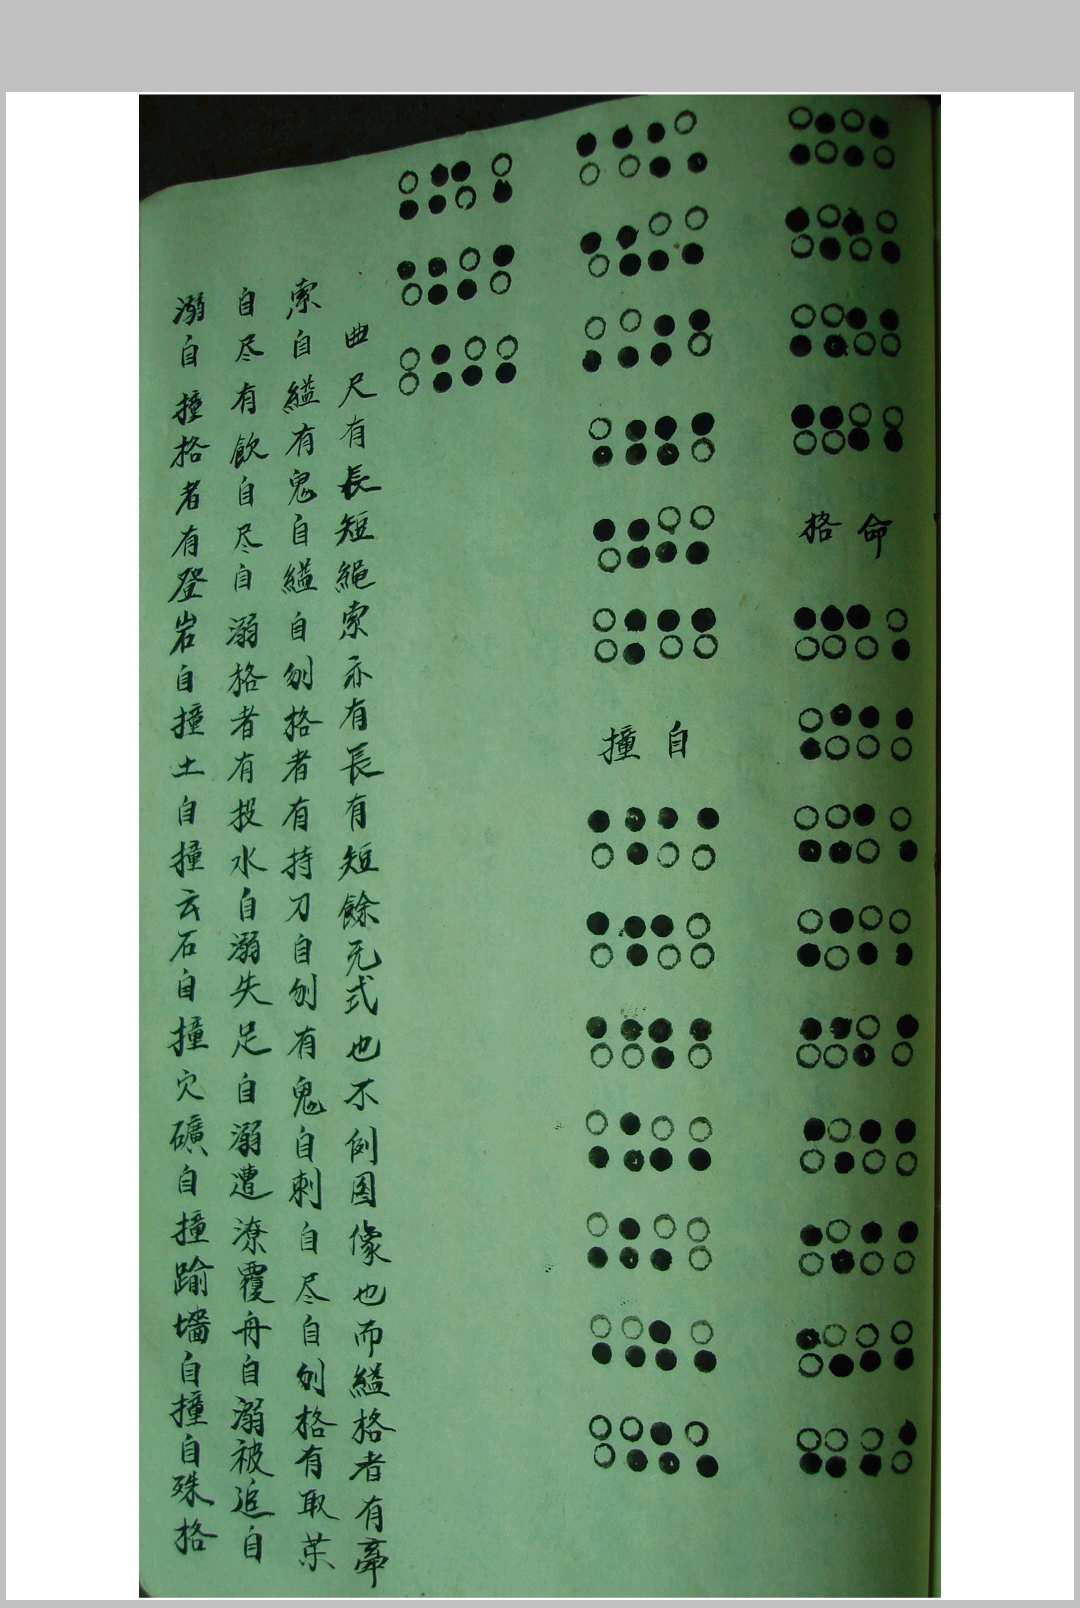 命格
自撞
曲尺有長短繩索亦有長有短餘无式也不例图像也而縊格者有牽
索自縊有鬼自縊自刎格者有持刀自刎有鬼自刺自尽自刎格有取葉
自尽有飲自尽自溺格者有投水自溺失足自溺遭潦覆舟自溺被追自
溺自撞格者有登岩自撞土自撞云石自撞穴礦自撞踰墻自撞自殊格